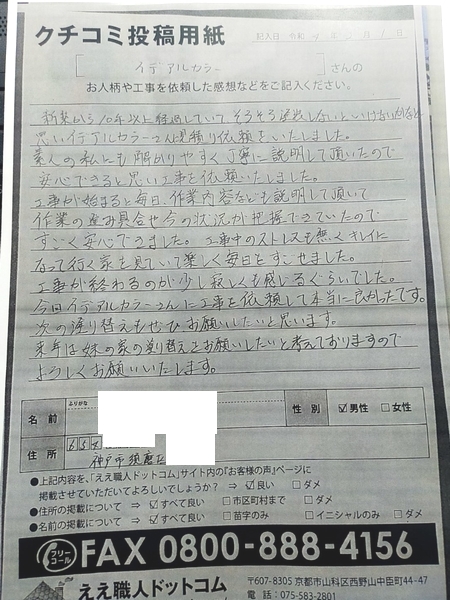 クチコミ投稿用紙
記入日 令和4年 月1日
[ イデアルカラー ]さんの
お人柄や工事を依頼した感想などをご記入ください。
新築から10年以上経過していて そろそろ塗装しないといけないかなと
思いイデアルカラーさんに見積り依頼をいたしました。
素人の私にも解かりやすく丁寧に説明して頂いたので
安心できると思い工事を依頼いたしました。
工事が始まると毎日、作業内容なども説明して頂いて
作業の進み具合や今の状況が把握できていたので
すごく安心できました。工事中のストレスも無くキレイに
なって行く家を見ていて楽しく毎日をすごせました。
工事が終わるのが少し寂しくも感じるぐらいでした。
今回イデアルカラーさんに工事を依頼して本当に良かったです。
次の塗り替えもぜひお願いしたいと思います。
来年は妹の家の塗り替えをお願いしたいと考えておりますので
よろしくお願いいたします。
ふりがな
名前
性別 ☑男性 □女性
住所 654
神戸市須磨区
●上記内容を、「ええ職人ドットコム」サイト内の『お客様の声』ページに
掲載させていただいてよろしいでしょうか? ⇒ ☑良い □ダメ
●住所の掲載について ⇒ ☑すべて良い □市区町村まで □ダメ
●名前の掲載について ⇒ ☑すべて良い □苗字のみ □イニシャルのみ □ダメ
フリーコール FAX 0800-888-4156
ええ職人ドットコム
〒607-8305 京都市山科区西野山中臣町44-47
電話:075-583-2801